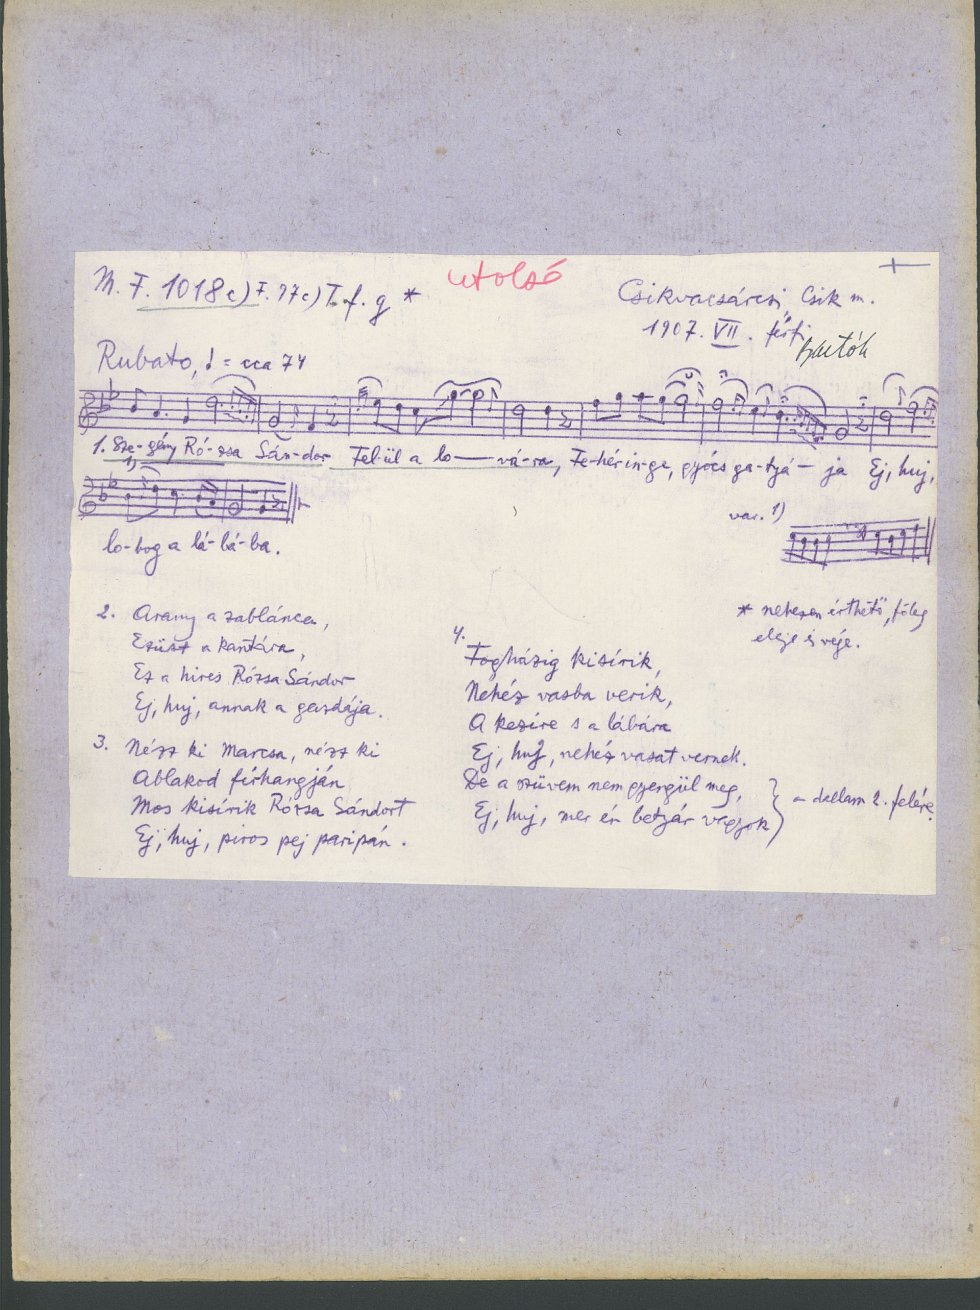 M. F. 1018c) F. 97c) T. f. g *
utolsó
Csikvacsárcsi, Csik m.
1907. VII. férfi
Bartók
Rubato, ♩ = cca 74
1. Sze-gény Ró-zsa Sán-dor Fel-ül a lo—vá-ra, Fe-hér in-ge, gyócs ga-tyá-ja Ej, huj,
1)
lo-bog a lá-bá-ba.
var. 1)
* nehezen érthető, főleg
eleje és vége.
2. Arany a zablánca,
Ezüst a kantára,
Ez a hires Rózsa Sándor
Ej, huj, annak a gazdája.
3. Nézz ki Marcsa, nézz ki
Ablakod férhangján
Mos kisírik Rózsa Sándort
Ej, huj, piros pej paripán.
4.
Fogházig kisírik,
Nehéz vasba verik,
A kezire s a lábára
Ej, huj, nehéz vasat vernek.
De a szüvem nem gyengül meg,
Ej, huj, mer én betyár vagyok
a dallam 2. felére.